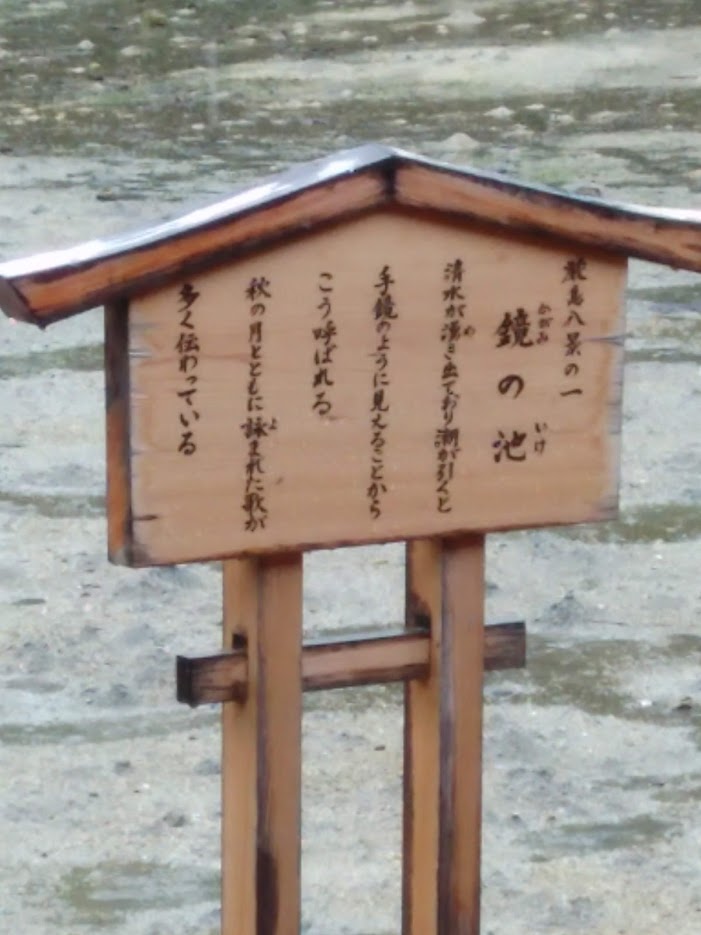 厳島八景の一
鏡の池
かがみ
いけ
清水が湧き出ており潮が引くと
わ
手鏡のように見えることから
こう呼ばれる
秋の月とともに詠まれた歌が
よ
多く伝わっている